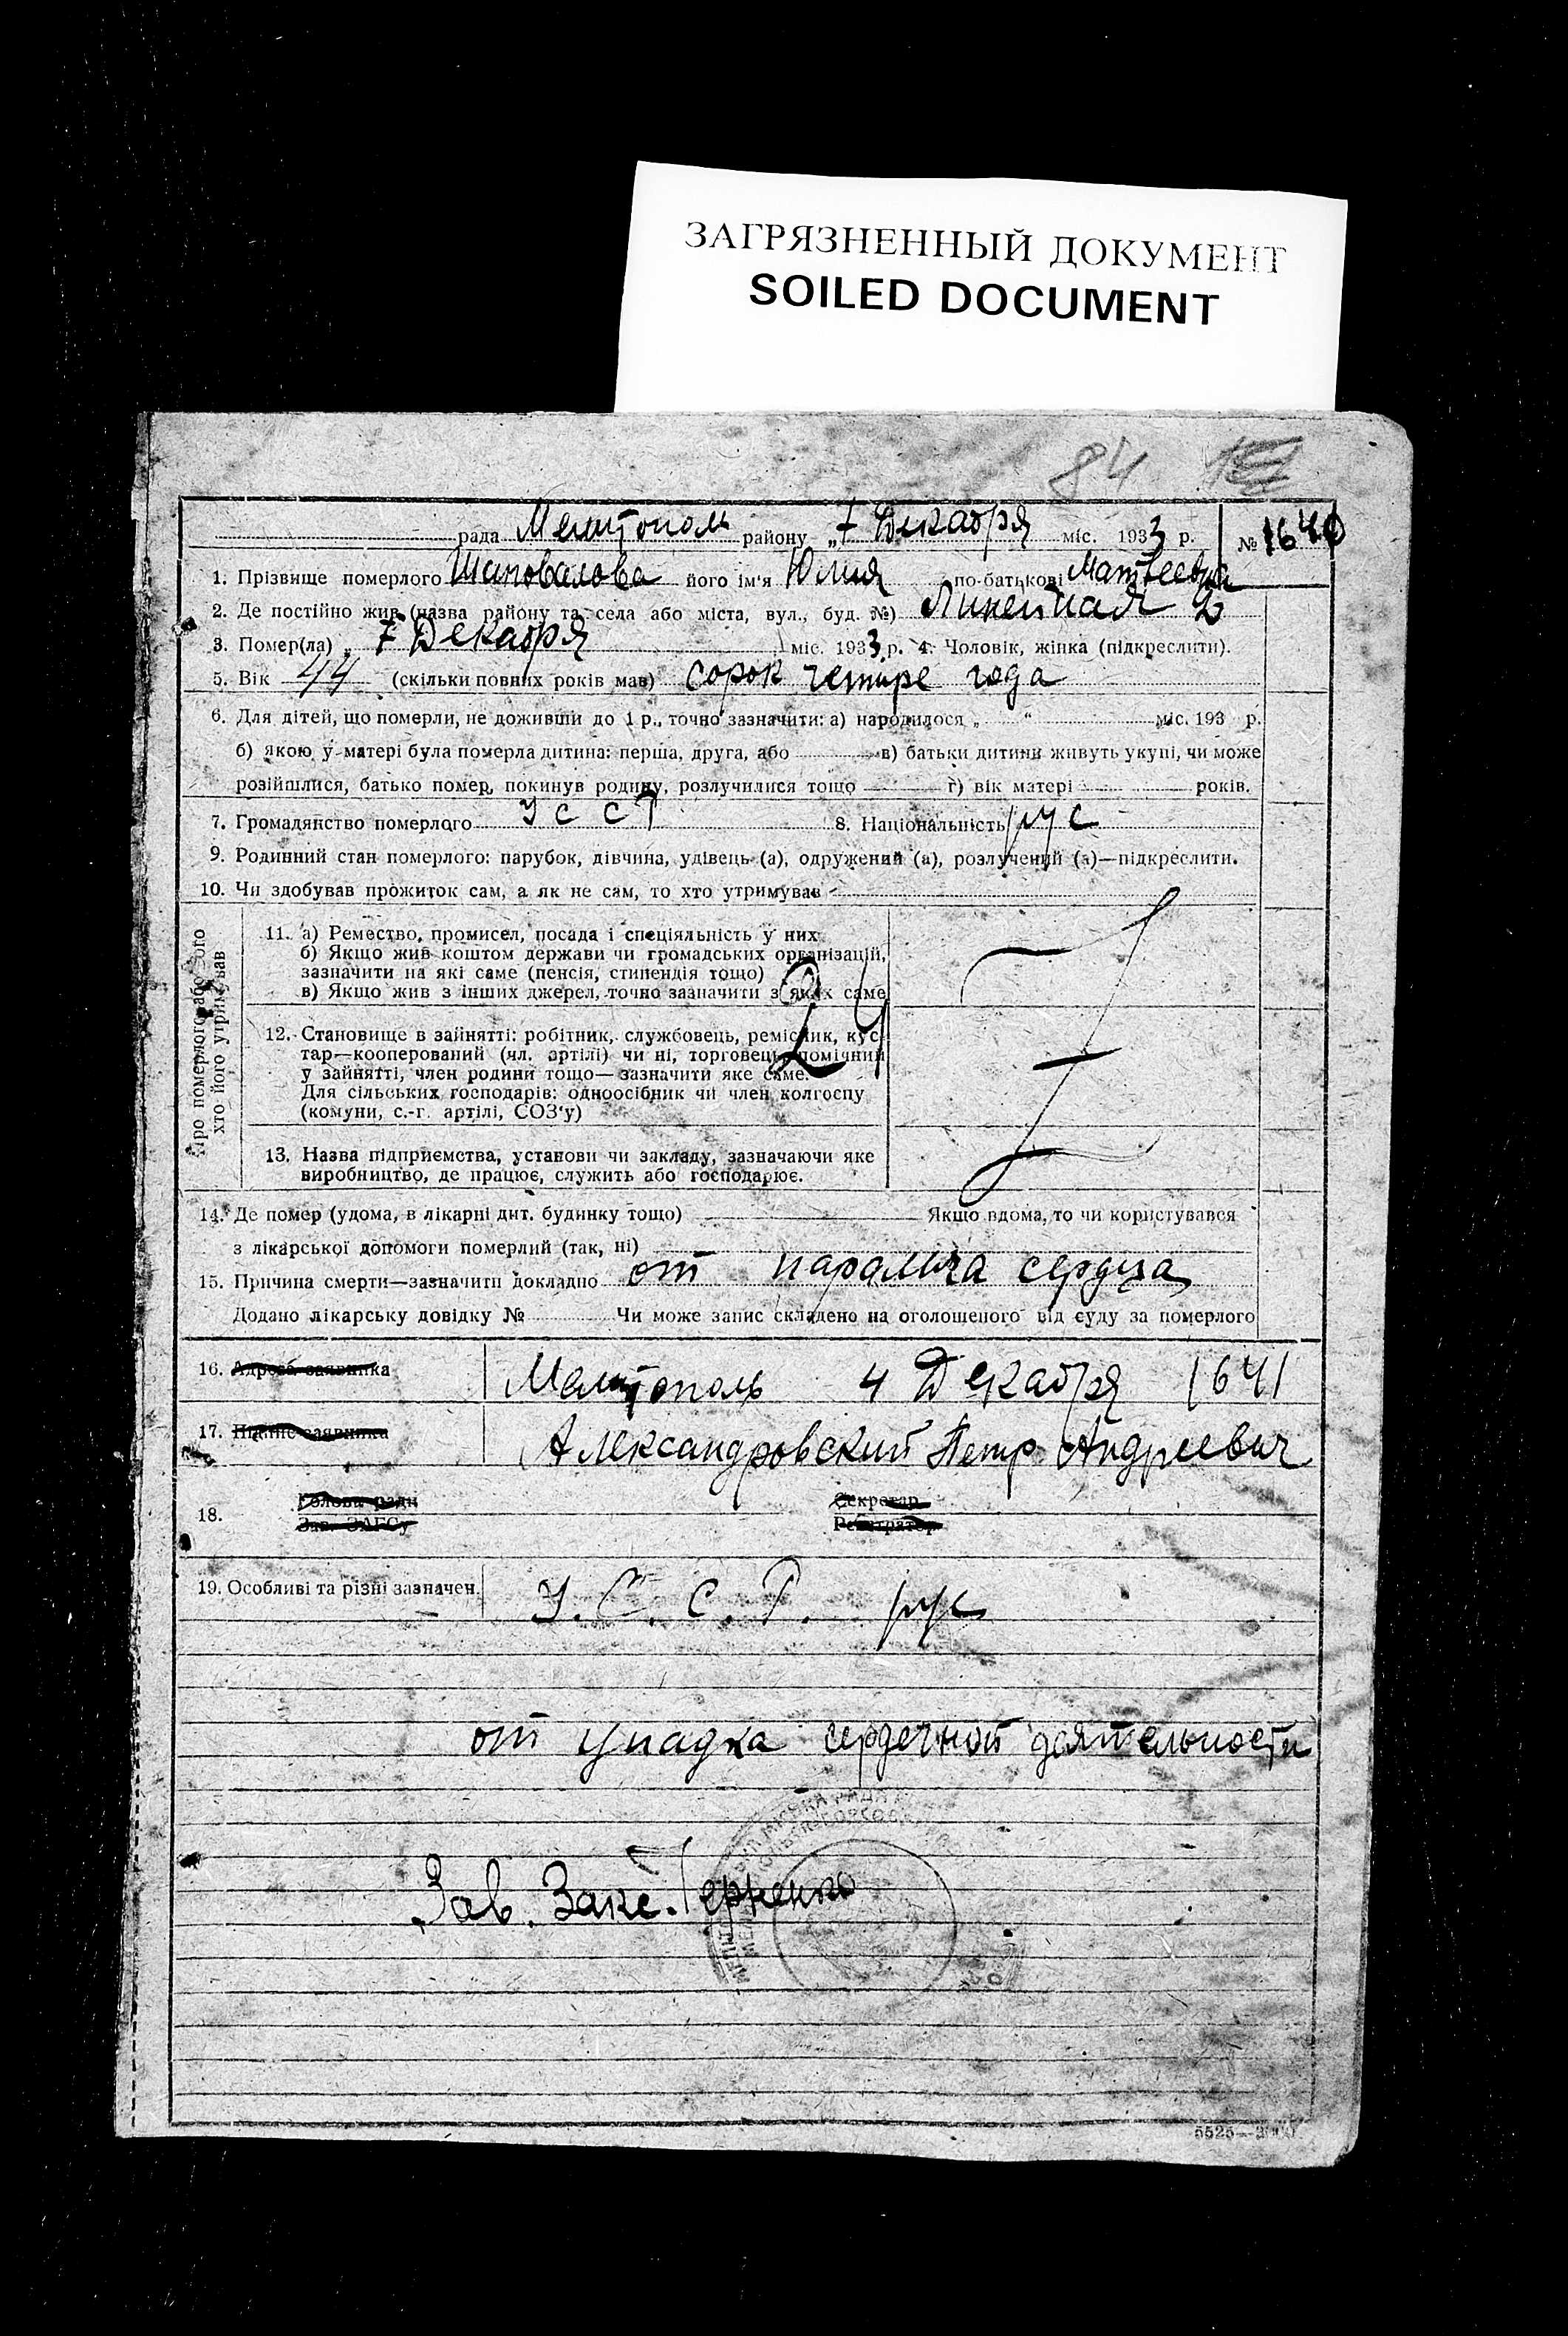 ЗАГРЯЗНЕННЫЙ ДОКУМЕНТ
SOILED DOCUMENT
84
рада Мелитополь району „7 Декабря міс. 1933 р. № 1640
1. Прізвище померлого Шаповалова його ім'я Юлия по-батькові Матвеевна
2. Де постійно жив (назва району та села або міста, вул., буд. №) Линейная 2
3. Помер(ла) „ 7 Декабря міс. 1933 р. 4. Чоловік, жінка (підкреслити).
5. Вік 44 (скільки повних років мав) сорок четыре года
6. Для дітей, що померли, не доживши до 1 р., точно зазначити: а) народилося „ “ міс. 193 р.
б) якою у матері була померла дитина: перша, друга, або в) батьки дитини живуть укупі, чи може
розійшлися, батько помер, покинув родину, розлучилися тощо г) вік матері років.
7. Громадянство померлого УССР 8. Національність рус
9. Родинний стан померлого: парубок, дівчина, удівець (а), одружений (а), розлучений (а)—підкреслити.
10. Чи здобував прожиток сам, а як не сам, то хто утримував
Про померлого або його
хто його утримував
11. а) Ремество, промисел, посада і спеціяльність у них
б) Якщо жив коштом держави чи громадських організацій,
зазначити на які саме (пенсія, стипендія тощо)
в) Якщо жив з інших джерел, точно зазначити з яких саме
24
12. Становище в зайнятті: робітник, службовець, ремісник, кус-
тар—кооперований (чл. артілі) чи ні, торговець, помічний
у зайнятті, член родини тощо—зазначити яке саме.
Для сільських господарів: одноосібник чи член колгоспу
(комуни, с.-г. артілі, СОЗ'у)
13. Назва підприємства, установи чи закладу, зазначаючи яке
виробництво, де працює, служить або господарює.
14. Де помер (удома, в лікарні дит. будинку тощо) Якщо вдома, то чи користувався
з лікарської допомоги померлий (так, ні)
15. Причина смерти—зазначити докладно от паралича сердца
Додано лікарську довідку № Чи може запис складено на оголошеного від суду за померлого
16. Адреса заявника Мелитополь 4 Декабря 1641
17. Підпис заявника Александровский Петр Андреевич
18. Голова ради Секретар
Зав. ЗАГСу Реєстратор
19. Особливі та різні зазначен. У.С.С.Р. рус
от упадка сердечной деятельности
Зав. Загс.
5525—